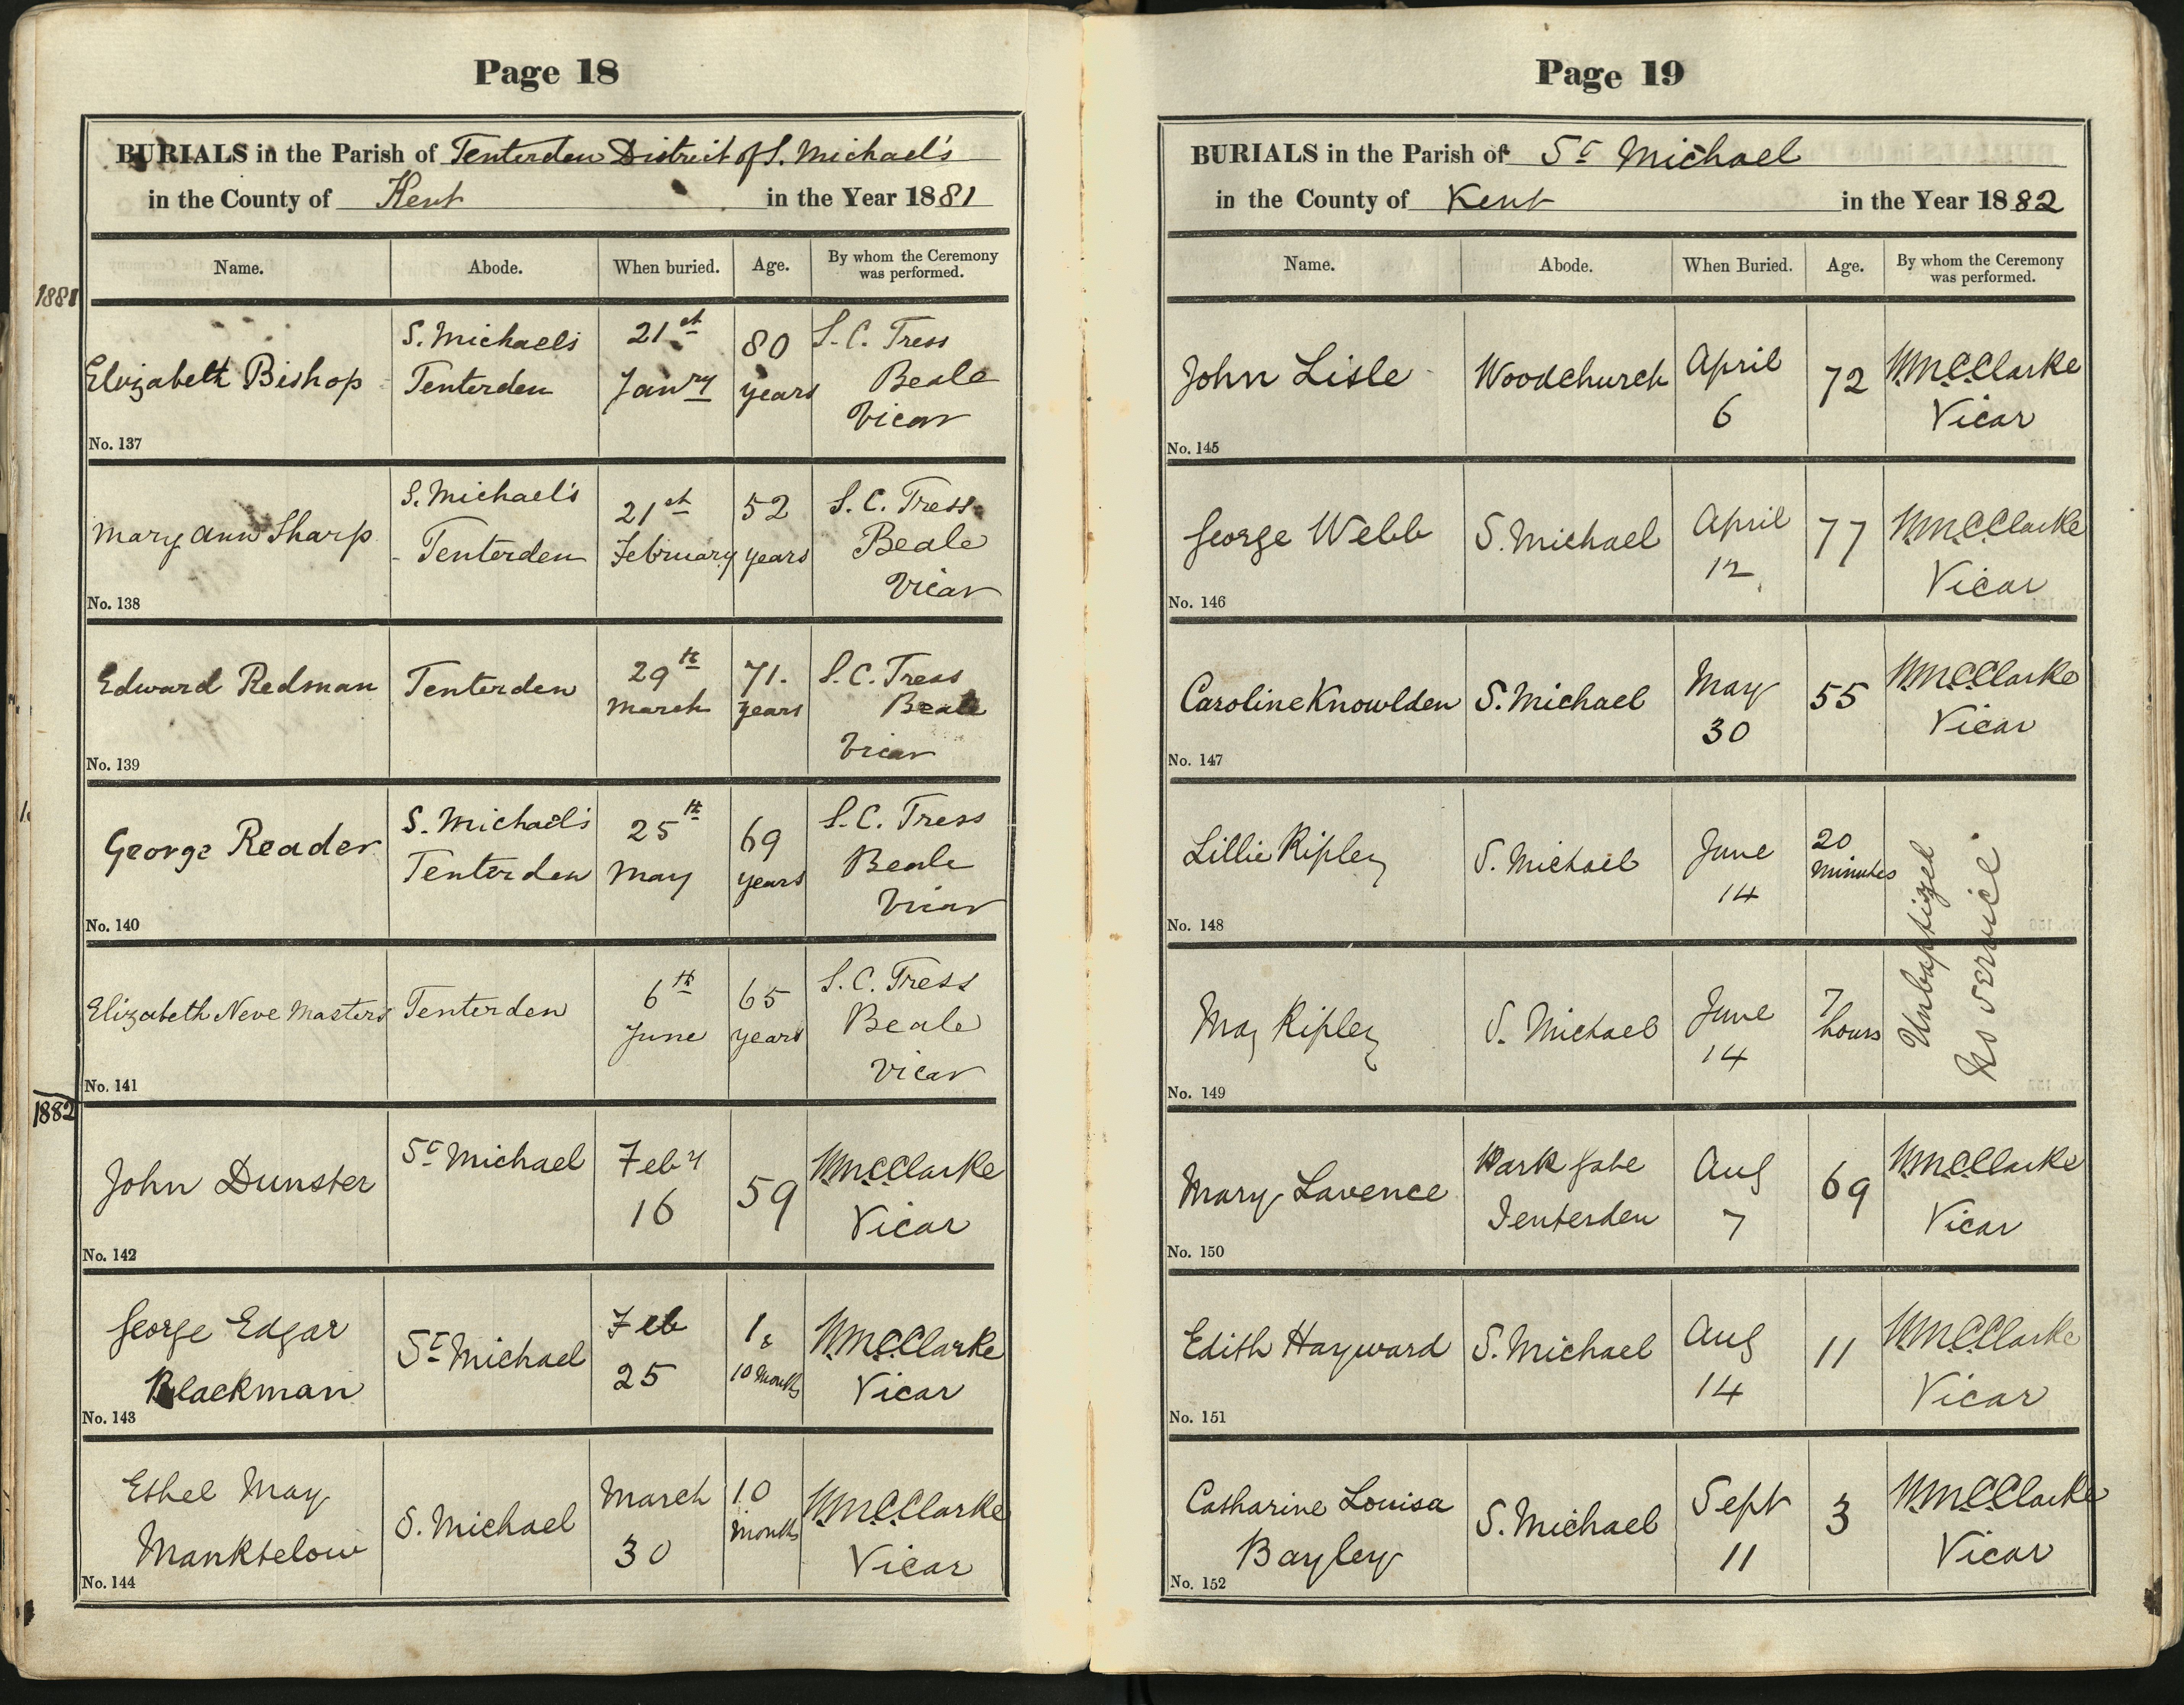 Page 18
BURIALS in the Parish of Tenterden District of S. Michael's
in the County of Kent in the Year 1881
Name. Abode. When buried. Age. By whom the Ceremony was performed.
1881
Elizabeth Bishop
S. Michaels
Tenterden
21st
Janry
80
years
S. C. Tress
Beale
Vicar
No. 137
Mary Ann Sharp
S. Michael's
Tenterden
21st
February
52
years
S. C. Tress
Beale
Vicar
No. 138
Edward Redman
Tenterden
29th
March
71.
years
S. C. Tress
Beale
Vicar
No. 139
George Reader
S. Michael's
Tenterden
25th
May
69
years
S. C. Tress
Beale
Vicar
No. 140
Elizabeth Neve Masters
Tenterden
6th
June
65
years
S. C. Tress
Beale
Vicar
No. 141
1882
John Dunster
St Michael
Feby
16
59
Wm.C.Clarke
Vicar
No. 142
George Edgar
Blackman
St Michael
Feb
25
1 &
10 Months
Wm.C.Clarke
Vicar
No. 143
Ethel May
Manktelow
S. Michael
March
30
10
Months
Wm.C.Clarke
Vicar
No. 144
Page 19
BURIALS in the Parish of St Michael
in the County of Kent in the Year 1882
Name. Abode. When Buried. Age. By whom the Ceremony was performed.
John Lisle
Woodchurch
April
6
72
Wm.C.Clarke
Vicar
No. 145
George Webb
S. Michael
April
12
77
Wm.C.Clarke
Vicar
No. 146
Caroline Knowlden
S. Michael
May
30
55
Wm.C.Clarke
Vicar
No. 147
Lillie Ripley
S. Michael
June
14
20
Minutes
Unbaptized
No Service
No. 148
May Ripley
S. Michael
June
14
7
hours
No. 149
Mary Lavence
Park Gate
Tenterden
Aug
7
69
Wm.C.Clarke
Vicar
No. 150
Edith Hayward
S. Michael
Aug
14
11
Wm.C.Clarke
Vicar
No. 151
Catharine Louisa
Bayley
S. Michael
Sept
11
3
Wm.C.Clarke
Vicar
No. 152